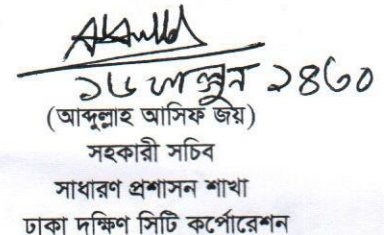 ১৬ ফাল্গুন ১৪৩০
(আব্দুল্লাহ আসিফ জয়)
সহকারী সচিব
সাধারণ প্রশাসন শাখা
ঢাকা দক্ষিণ সিটি কর্পোরেশন